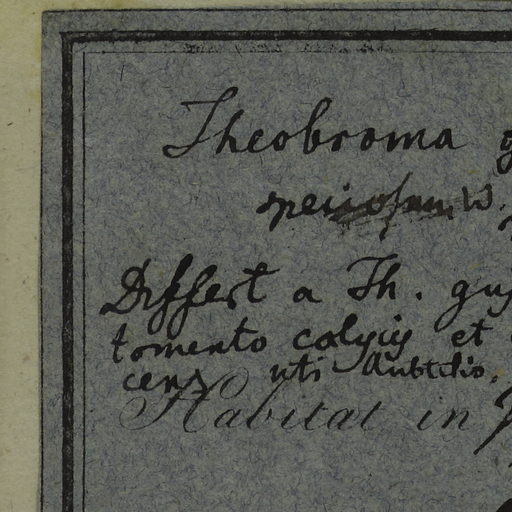 Theobroma g
speciosum W.
Differt a Th. gu
tomento calycis et
cens uti
Habitat in